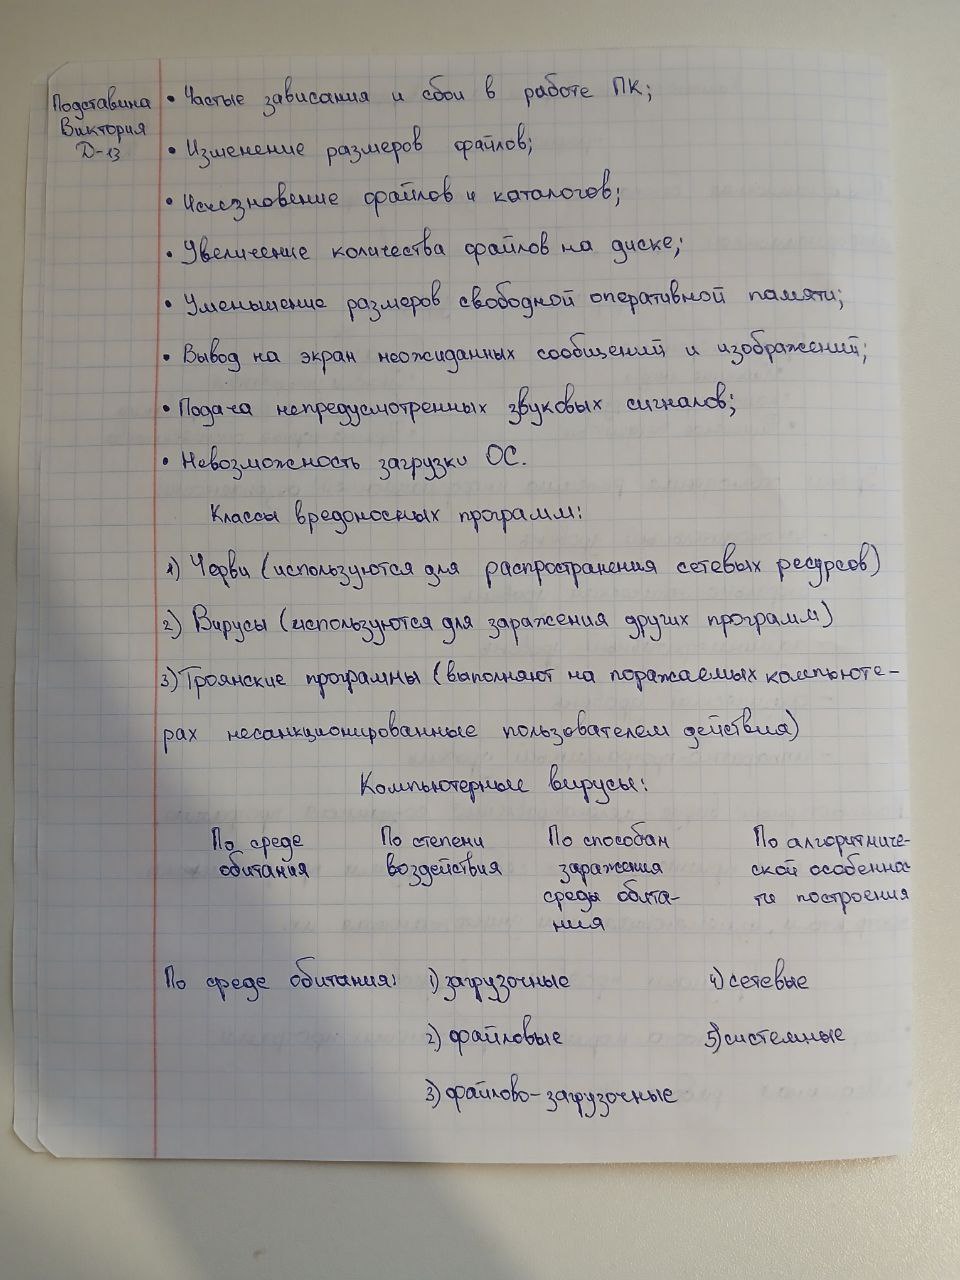 Подставина
Виктория
Д-13
• Частые зависания и сбои в работе ПК;
• Изменение размеров файлов;
• Исчезновение файлов и каталогов;
• Увеличение количества файлов на диске;
• Уменьшение размеров свободной оперативной памяти;
• Вывод на экран неожиданных сообщений и изображений;
• Подача непредусмотренных звуковых сигналов;
• Невозможность загрузки ОС.
Классы вредоносных программ:
1) Черви (используются для распространения сетевых ресурсов)
2) Вирусы (используются для заражения других программ)
3) Троянские программы (выполняют на поражаемых компьюте-
рах несанкционированные пользователем действия)
Компьютерные вирусы:
По среде обитания
По степени воздействия
По способам заражения среды обита-
ния
По алгоритмиче-
ской особеннос-
ти построения
По среде обитания: 1) загрузочные 4) сетевые
2) файловые 5) системные
3) файлово-загрузочные